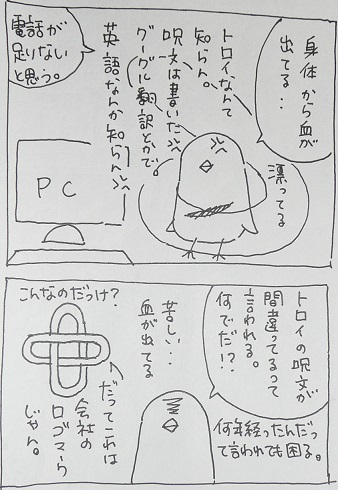 身体から血が
出てる・・
トロイなんて
知らん。
呪文は書いた
グーグル翻訳とかで。
英語なんか知らん
漂ってる
電話が
足りない
と思う。
PC
トロイの呪文が
間違ってるって
言われる。
何でだ!?
何年経ったんだっ
て言われても困る。
苦しい・・
血が出てる
こんなのだっけ?
だってこれは
会社の
ロゴマーク
じゃん。